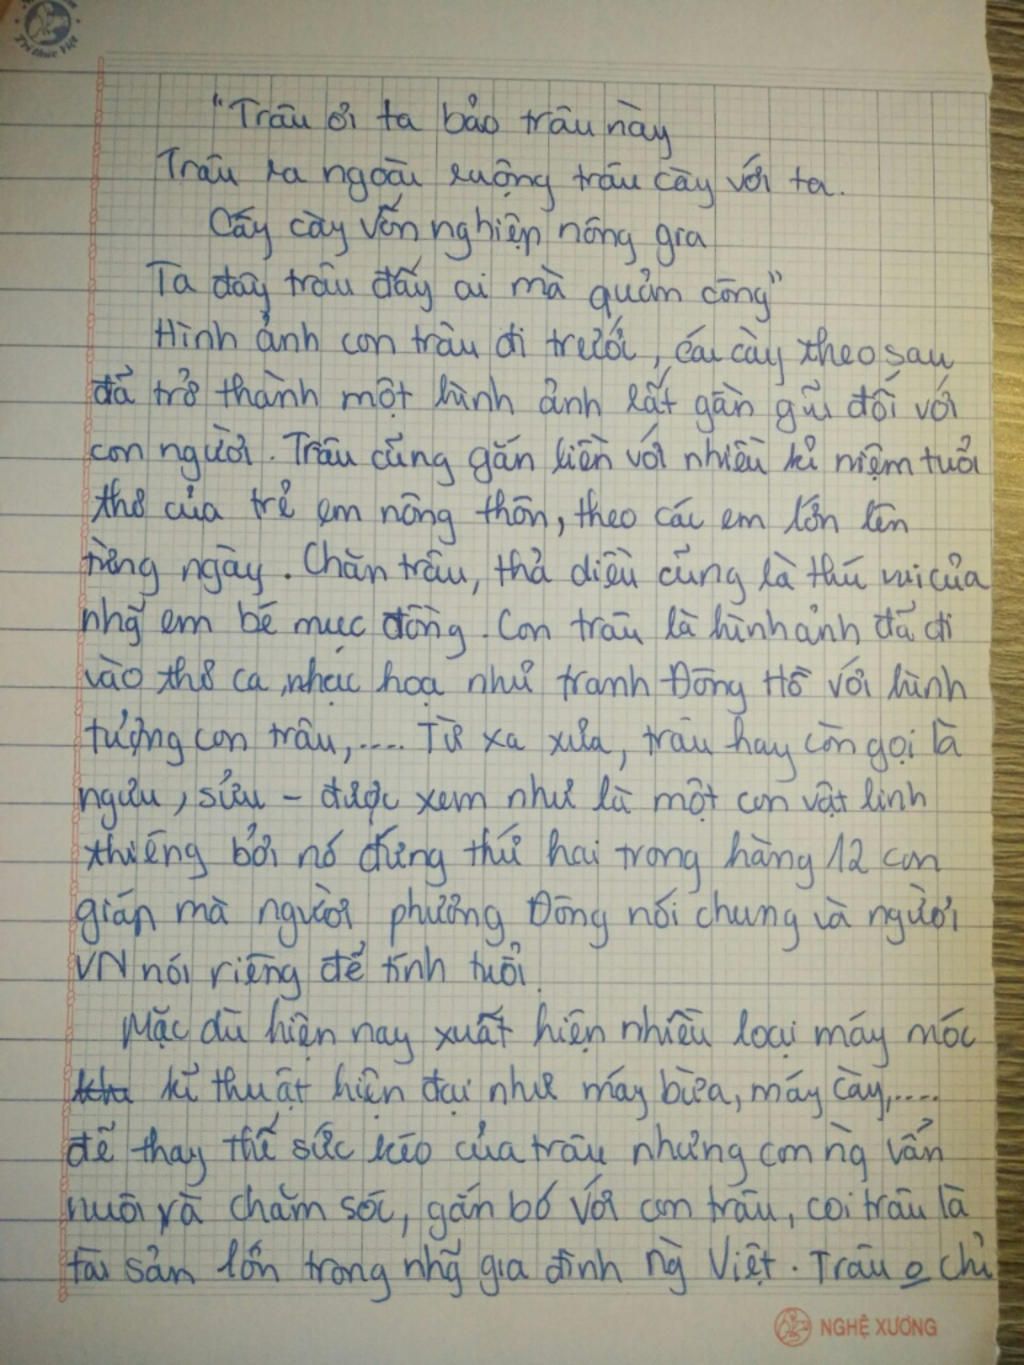 Trí thức Việt
"Trâu ơi ta bảo trâu này
Trâu ra ngoài ruộng trâu cày với ta.
Cấy cày vốn nghiệp nông gia
Ta đây trâu đấy ai mà quản công"
Hình ảnh con trâu đi trước, cái cày theo sau
đã trở thành một hình ảnh rất gần gũi đối với
con người. Trâu cũng gắn liền với nhiều kỉ niệm tuổi
thơ của trẻ em nông thôn, theo các em lớn lên
từng ngày. Chăn trâu, thả diều cũng là thú vui của
nhg~ em bé mục đồng. Con trâu là hình ảnh đã đi
vào thơ ca, nhạc hoạ như tranh Đông Hồ với hình
tượng con trâu,.... Từ xa xưa, trâu hay còn gọi là
ngưu, sửu - được xem như là một con vật linh
thiêng bởi nó đứng thứ hai trong hàng 12 con
giáp mà người phương Đông nói chung và người
VN nói riêng để tính tuổi.
Mặc dù hiện nay xuất hiện nhiều loại máy móc
kĩ thuật hiện đại như máy bừa, máy cày,....
để thay thế sức kéo của trâu nhưng con ng̀ vẫn
nuôi và chăm sóc, gắn bó với con trâu, coi trâu là
tài sản lớn trong nhg~ gia đình ng̀ Việt. Trâu o chỉ
NGHỆ XƯƠNG